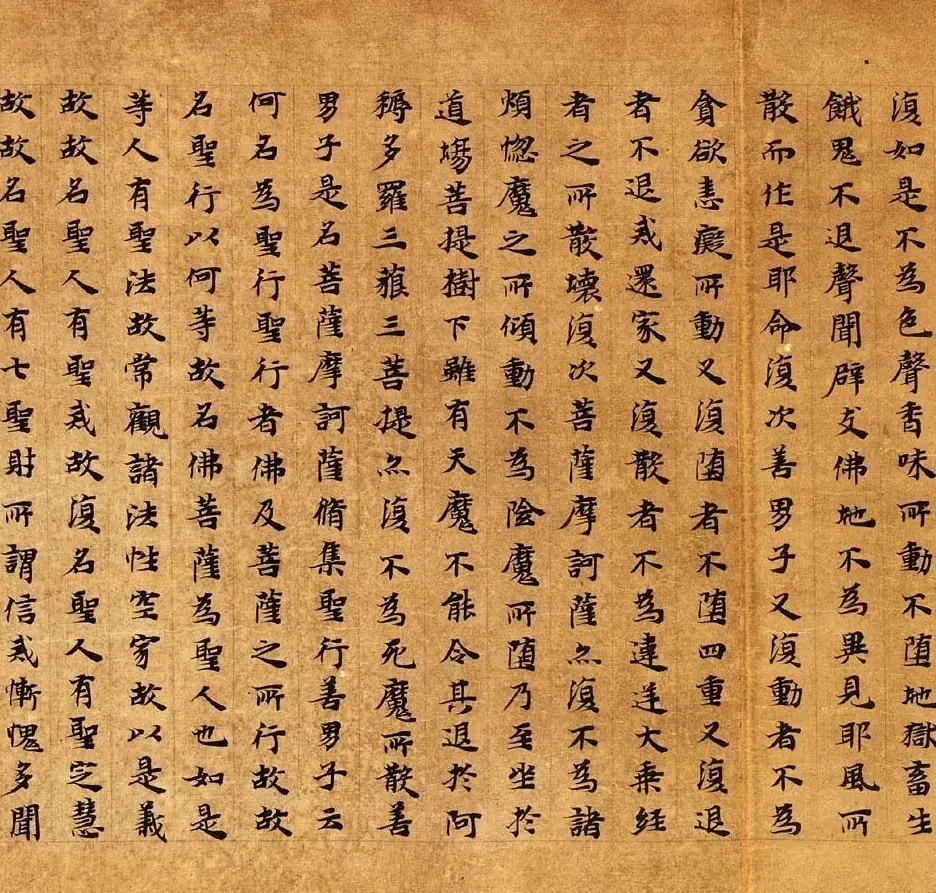 復如是不為色聲香味所動不堕地獄畜生
餓鬼不退聲聞辟支佛地不為異見耶風所
散而作是耶命復次善男子又復動者不為
貪欲恚癡所動又復堕者不堕四重又復退
者不退戒還家又復散者不為違逆大乗経
者之所散壞復次菩薩摩訶薩亦復不為諸
煩惚魔之所傾動不為陰魔所堕乃至坐於
道場菩提樹下雖有天魔不能令其退於阿
耨多羅三藐三菩提亦復不為死魔所散善
男子是名菩薩摩訶薩脩集聖行善男子云
何名為聖行聖行者佛及菩薩之所行故故
名聖行以何等故名佛菩薩為聖人也如是
等人有聖法故常觀諸法性空寂故以是義
故故名聖人有聖戒故復名聖人有聖定慧
故故名聖人有七聖財所謂信戒慚愧多聞